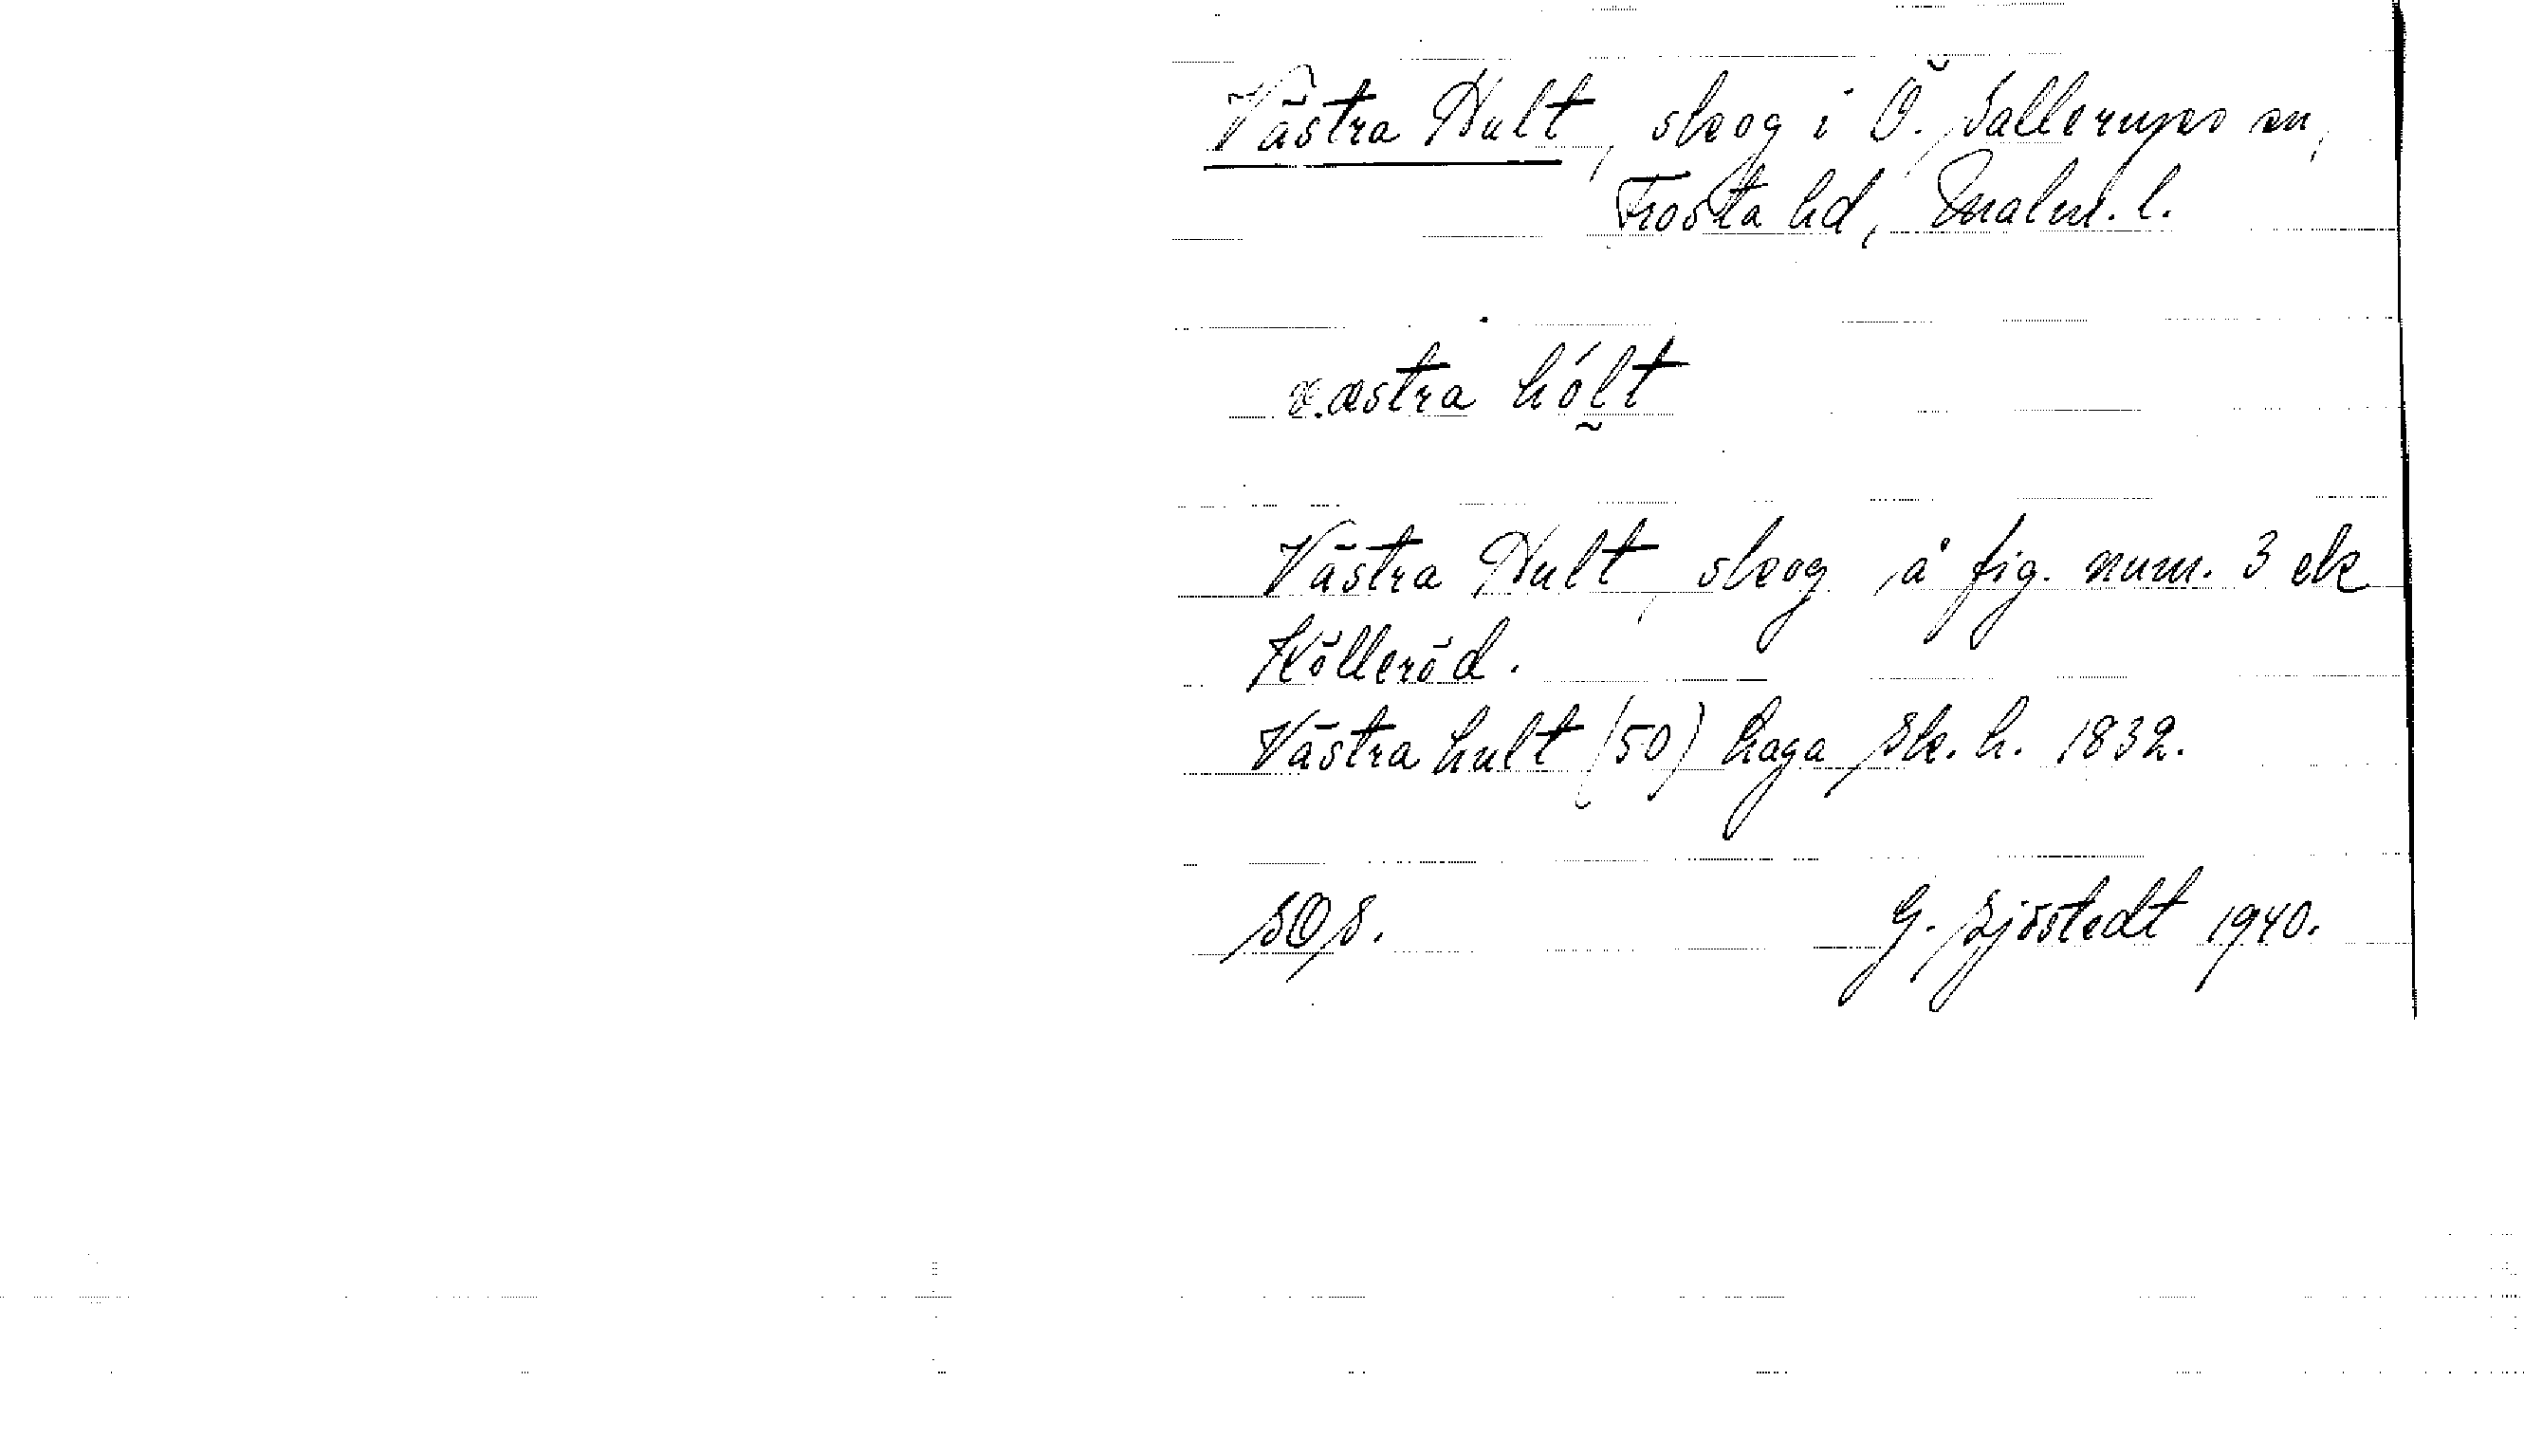 Västra Hult, skog i Ö. Sallerups sn,
Frosta hd, Malm. l.
v.æstra hólt
Västra Hult, skog, å fig. num. 3 ek
Kölleröd.
Västra hult (50) haga Sk. h. 1832.
SOS. G. Sjöstedt 1940.